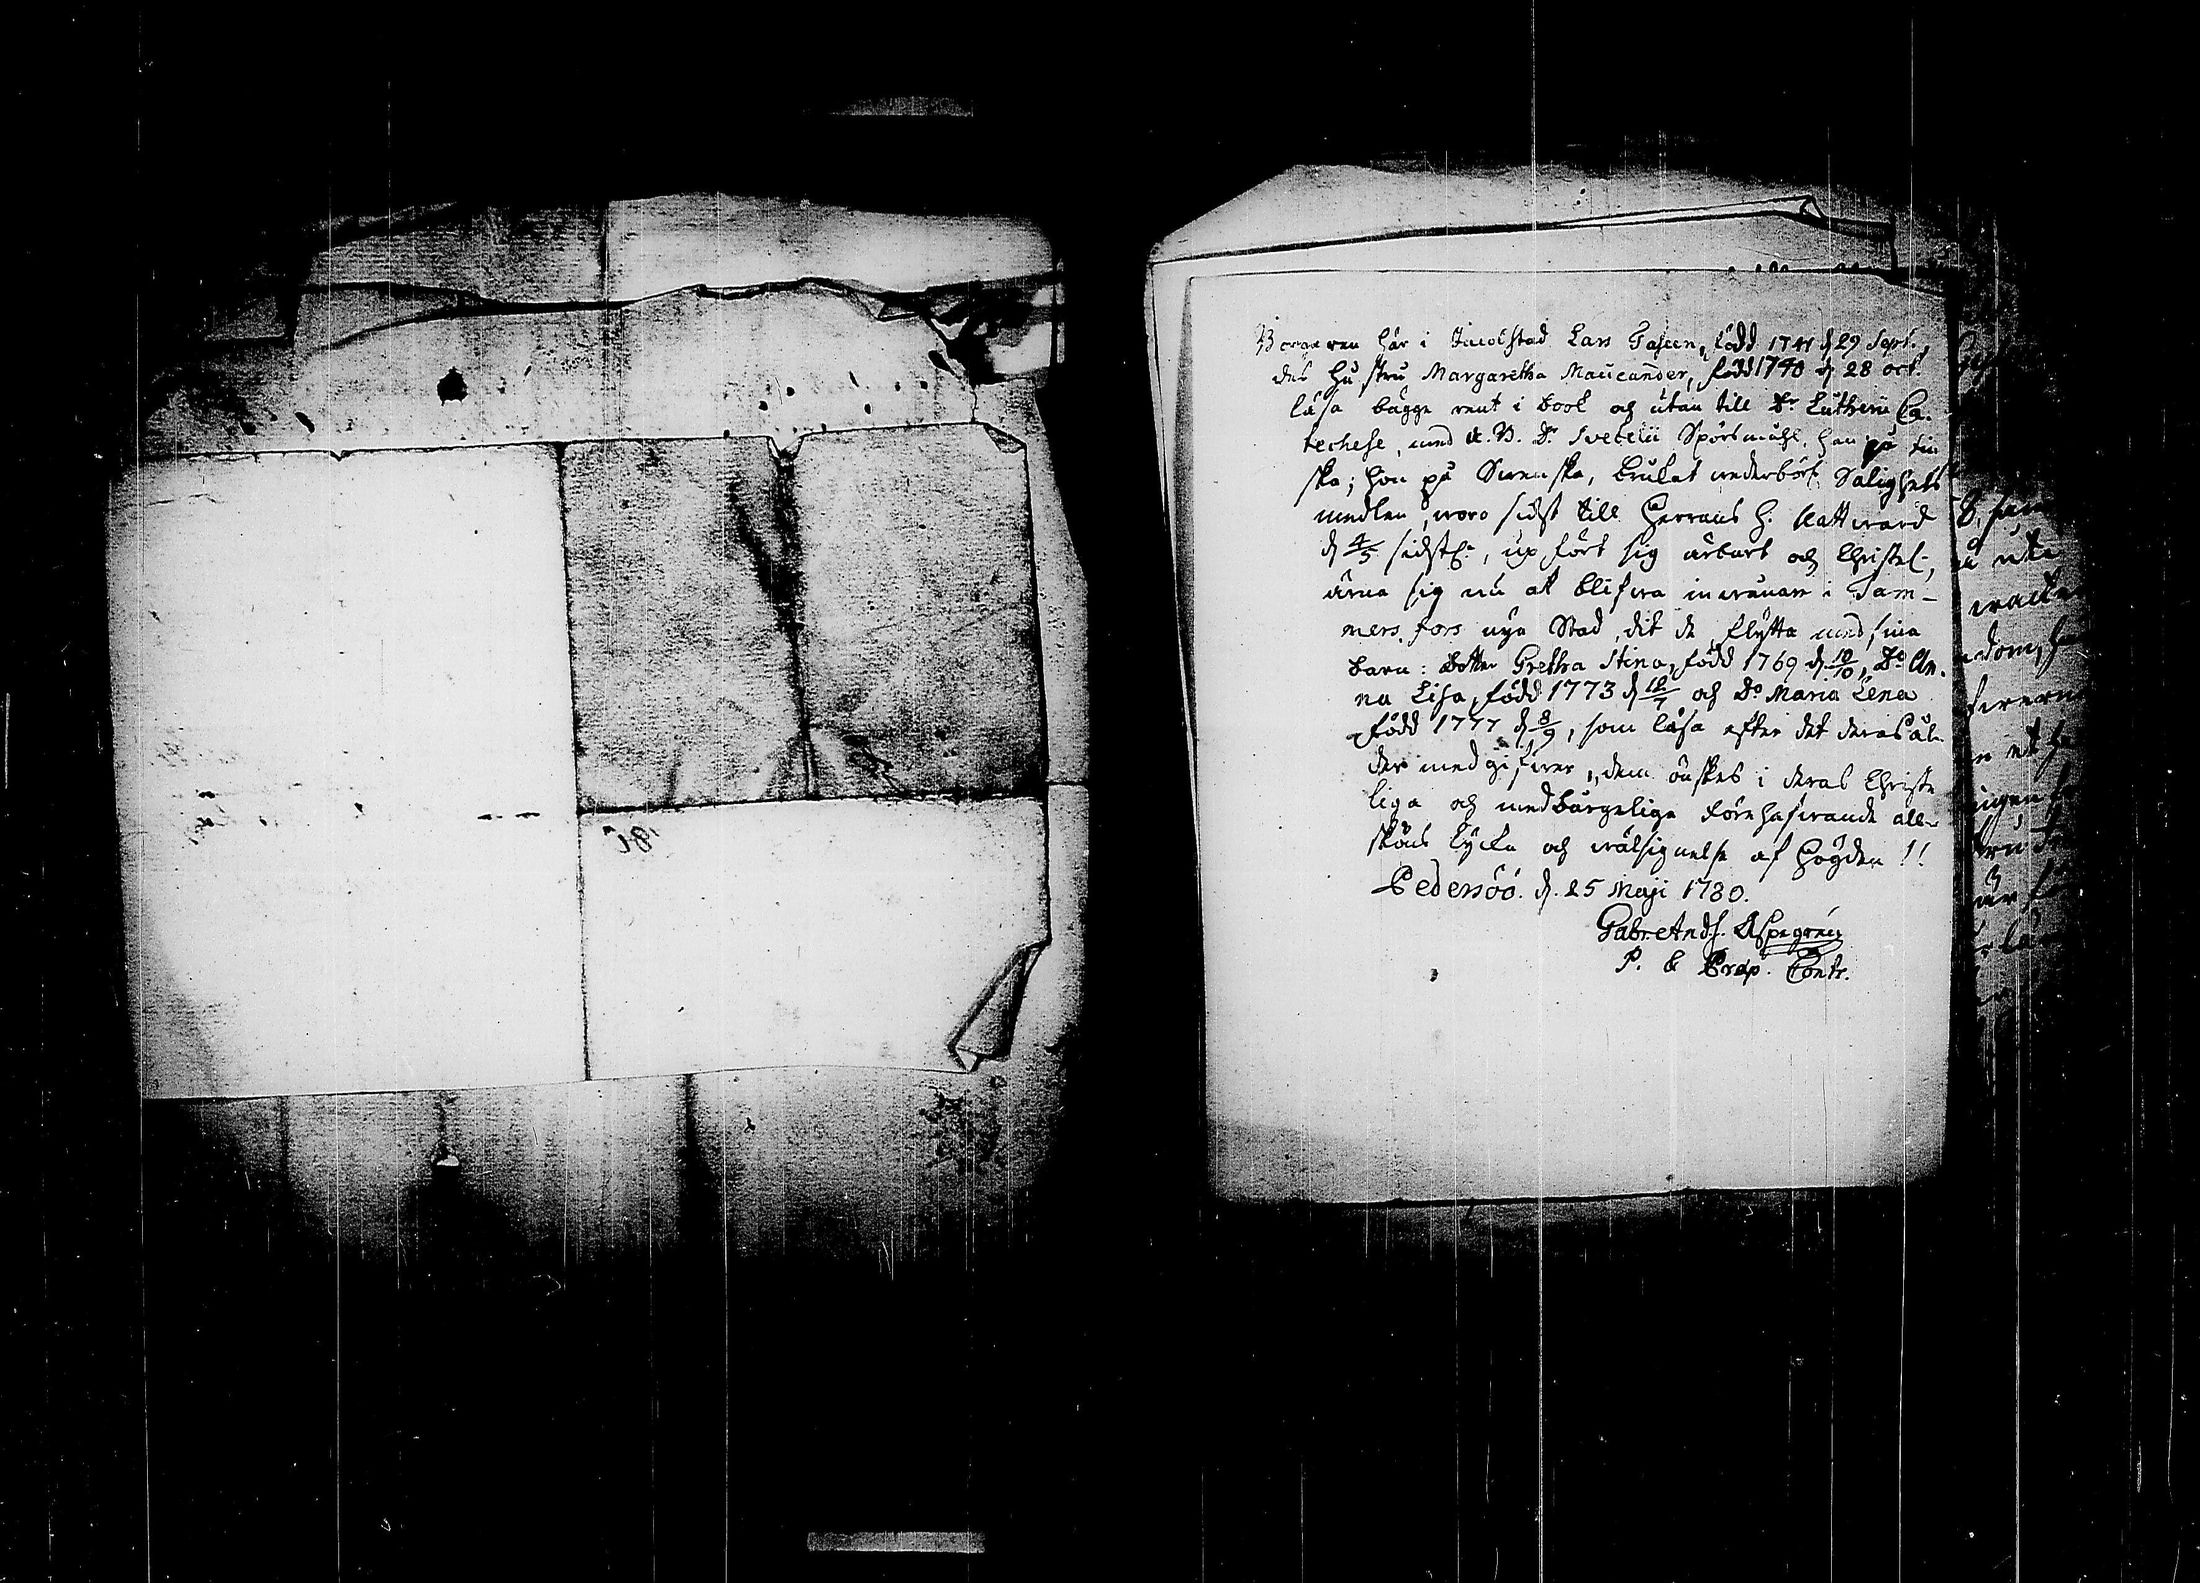 Borgaren här i Jacobstad Lars Fahlen, född 1741 d 29 Sept.,
des hustru Margaretha Maucander, född 1740 d 28 oct.
läsa bägge rent i book och utan till Dr Lutheri Ca-
techese, med A. B. Dr Svebelii Spörsmåhl, han på fin
ska; hon på Swenska, brukat wederbörl. Salighets
medlen, woro sidst till Herrans H. Nattward
d 4/5 sidstl., upfört sig ärbart och Christel.,
ärna sig nu at blifwa inwånare i Tam-
mersfors nya Stad, dit de flytta med sina
barn: Dotter Gretha Stina, född 1769 d 10/10, Do An-
na Lisa, född 1773 d 12/7 och Do Maria Lena
född 1777 d 8/9, som läsa efter det deras ål-
der medgifwer, dem önskes i deras Christe
liga och medborgeliga förehafwande all-
sköns lycka och wälsignelse af högden!!
Pedersöö. d. 25 Maji 1780.
Gabr. And.s. Aspegrén
P. & Præp. Contr.